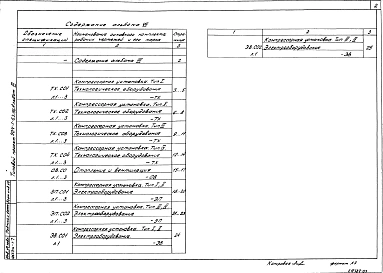 2
Содержание альбома VI
Обозначение спецификации
Наименование основного комплекта рабочих чертежей и его марка
Стра-ница
1 2 3
— Содержание альбома VI 2
Компрессорная установка. Тип I
ТХ.СО1 Технологическое оборудование 3..5
л.1...3 -ТХ
Компрессорная установка. Тип II
ТХ.СО2 Технологическое оборудование 6-8
л.1...3 -ТХ
Компрессорная установка. Тип III
ТХ.СО3 Технологическое оборудование 9..11
л.1...3 -ТХ
Компрессорная установка. Тип IV
ТХ.СО4 Технологическое оборудование 12-14
л.1...3 -ТХ
ОВ.СО Отопление и вентиляция 15-17
л.1...3 -ОВ
Компрессорная установка. Тип I, II
ЭП.СО1 Электрооборудование 18-20
л.1...3 -ЭП
Компрессорная установка. Тип III, IV
ЭП.СО2 Электрооборудование 21-23
л.1...3 -ЭП
Компрессорная установка. Тип I, II
ЭВ.СО1 Электрооборудование 24
л.1 -ЭВ
1 2 3
Компрессорная установка. Тип III, IV
ЭВ.СО2 Электрооборудование 25
л.1 -ЭВ
Копировал
формат А3